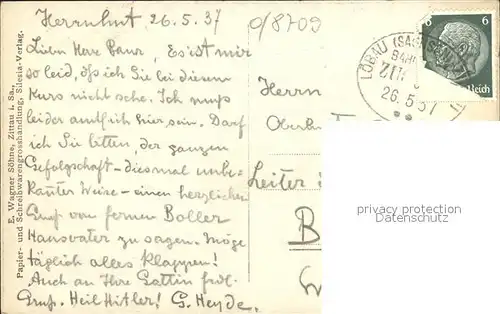 Herrnhut 26.5.37
0/8709
Lieber Herr Baur, Es ist mir
so leid, daß ich Sie bei diesem
Kurs nicht sehe. Ich muß
leider amtlich hier sein. Darf
ich Sie bitten, der ganzen
Gefolgschaft – diesmal unbe-
kannter Weise – einen herzlichen
Gruß von fernen Boller
Hausvater zu sagen. Möge
täglich alles klappen!
Auch an Ihre Gattin frdl.
Gruß. Heil Hitler! G. Heyde.
E. Wagner Söhne, Zittau i. Sa.,
Papier- und Schreibwarengrosshandlung, Silesia-Verlag.
LÖBAU (SACHS)
26.5.37
6 6
Reich
Herrn
Leiter
B
privacy protection
Datenschutz